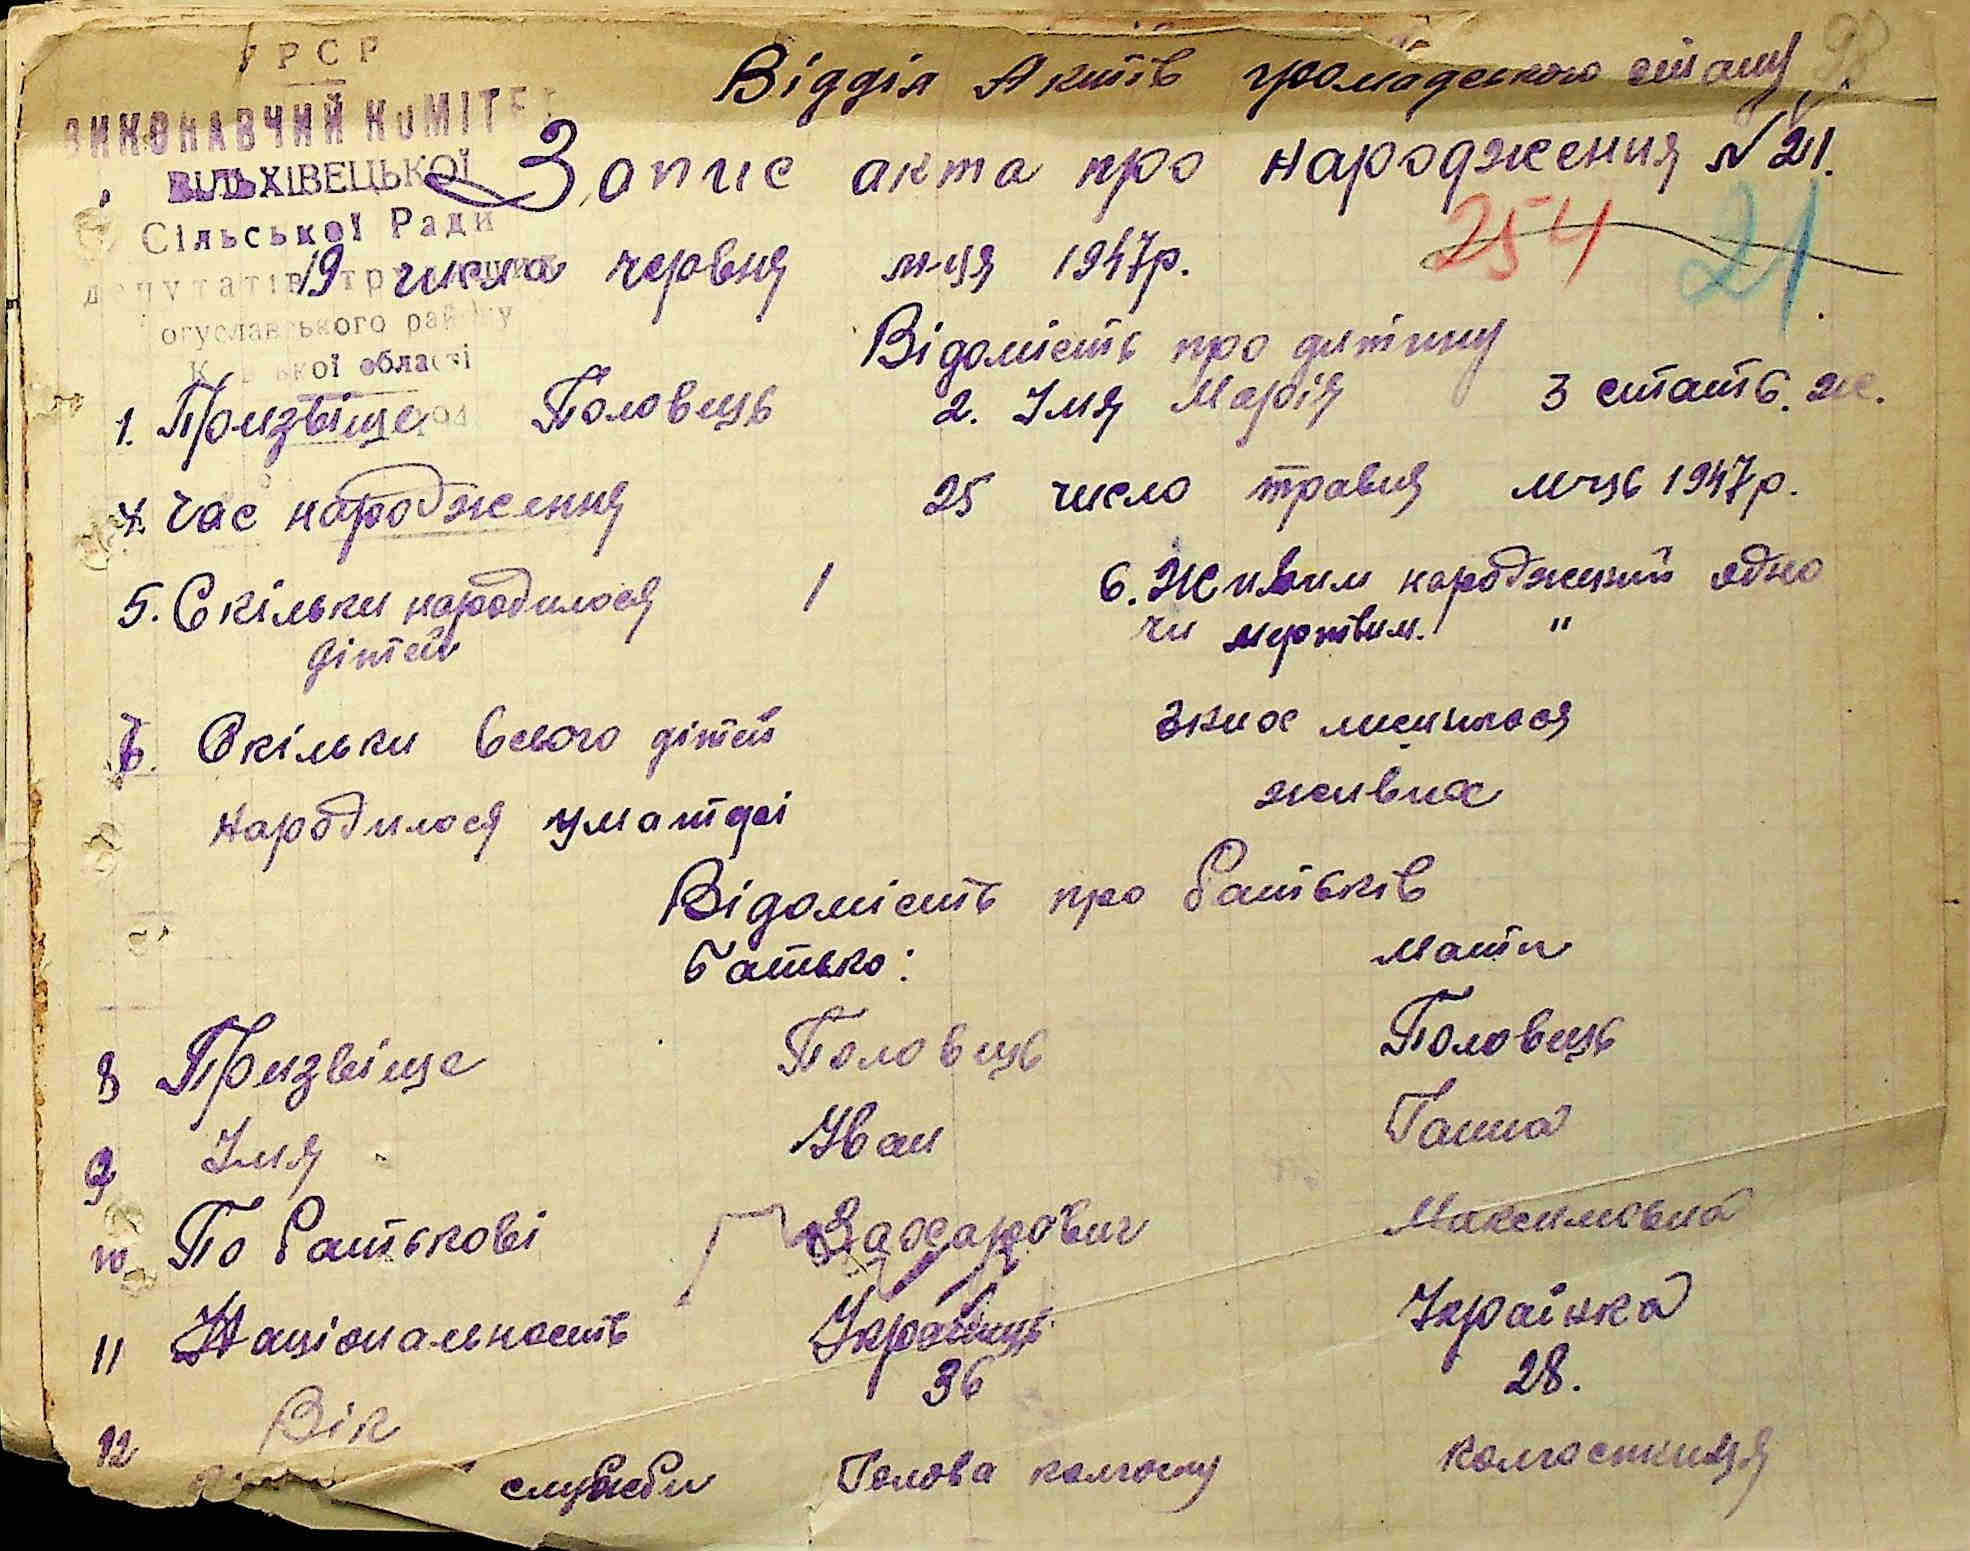 УРСР
ВИКОНАВЧИЙ КОМІТЕТ
ВІЛЬХІВЕЦЬКОЇ
Сільської Ради
депутатів
огуславського району
області
Відділ Актів громадського стану
Запис акта про народження № 21.
254 21
19 числа червня м-ця 1947р.
Відомість про дитину
1. Призвіще Половець 2. Імя Марія 3 стать. ж.
4. Час народження 25 число травня м-ць 1947р.
5. Скільки народилося 1 6. Живим народжений одно
дітей чи мертвим. "
7. Скільки всього дітей зних лишилося
народилося уматері живих
Відомість про батьків
Батько: мати
8 Призвіще Половець Половець
9 Імя Іван Ганна
10 По батькові Захарович Максимовна
11 Національность Українець Українка
12 Вік 36 28.
служби Голова колгоспу колгоспниця